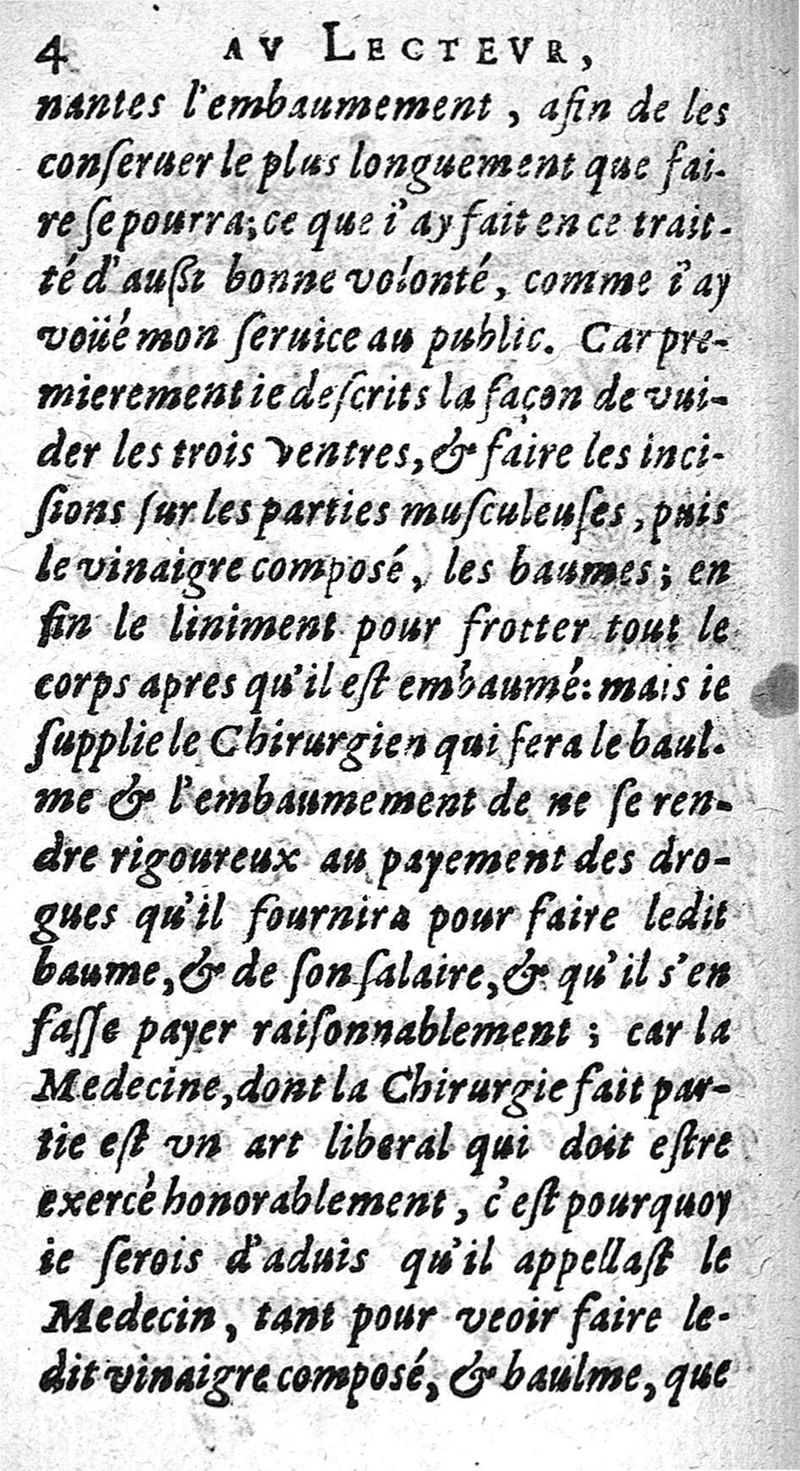 4 AV LECTEVR,
nantes l'embaumement, afin de les
conſeruer le plus longuement que fai-
re ſe pourra; ce que i'ay fait en ce trait-
té d'auſſi bonne volonté, comme i'ay
voüé mon ſeruice au public. Car pre-
mierement ie deſcrits la façon de vui-
der les trois ventres, & faire les inci-
ſions ſur les parties muſculeuſes, puis
le vinaigre compoſé, les baumes; en
fin le liniment pour frotter tout le
corps apres qu'il eſt embaumé: mais ie
ſupplie le Chirurgien qui fera le baul-
me & l'embaumement de ne ſe ren-
dre rigoureux au payement des dro-
gues qu'il fournira pour faire ledit
baume, & de ſon ſalaire, & qu'il s'en
faſſe payer raiſonnablement; car la
Medecine, dont la Chirurgie fait par-
tie eſt vn art liberal qui doit eſtre
exercé honorablement, c'eſt pourquoy
ie ſerois d'aduis qu'il appellaſt le
Medecin, tant pour veoir faire le-
dit vinaigre compoſé, & baulme, que